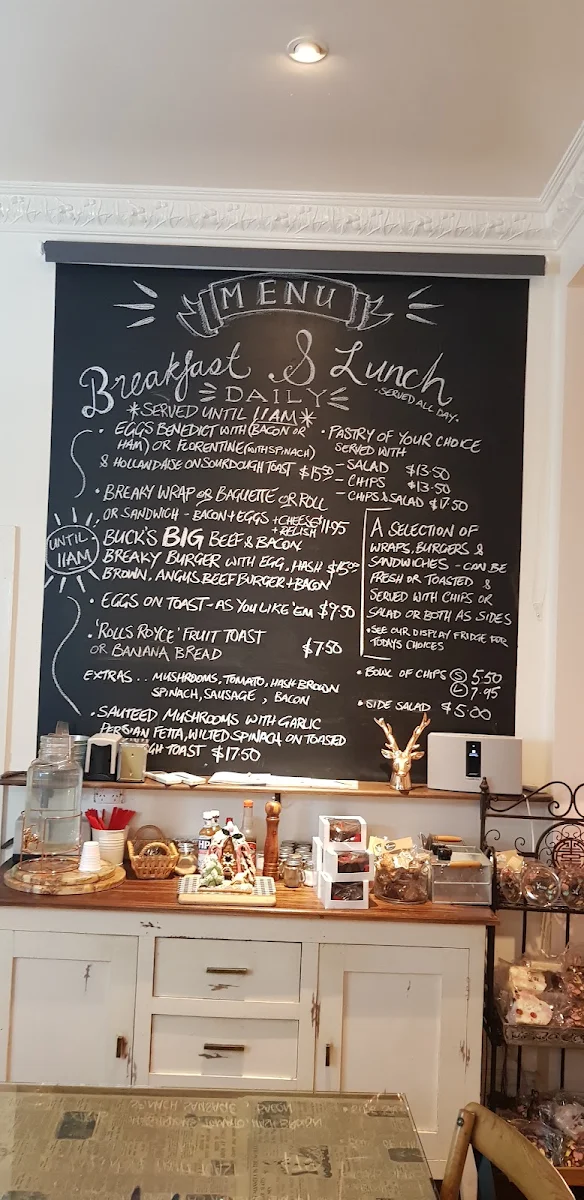 MENU
Breakfast & Lunch
DAILY
·SERVED ALL DAY·
*SERVED UNTIL 11AM*
· EGGS BENEDICT WITH (BACON OR
HAM) OR FLORENTINE (WITH SPINACH)
& HOLLANDAISE ON SOURDOUGH TOAST $15.50
· BREAKY WRAP OR BAGUETTE OR ROLL
OR SANDWICH - BACON + EGGS + CHEESE $11.95
+ RELISH
UNTIL
11AM
BUCK'S BIG BEEF & BACON
BREAKY BURGER WITH EGG, HASH
BROWN, ANGUS BEEF BURGER + BACON
· EGGS ON TOAST - AS YOU LIKE 'EM $9.50
· 'ROLLS ROYCE' FRUIT TOAST
OR BANANA BREAD $7.50
EXTRAS .. MUSHROOMS, TOMATO, HASH BROWN
SPINACH, SAUSAGE, BACON
· SAUTEED MUSHROOMS WITH GARLIC
PERSIAN FETTA, WILTED SPINACH ON TOASTED
GH TOAST $17.50
· PASTRY OF YOUR CHOICE
SERVED WITH
- SALAD $13.50
- CHIPS $13.50
- CHIPS & SALAD $17.50
A SELECTION OF
WRAPS, BURGERS &
SANDWICHES - CAN BE
FRESH OR TOASTED &
SERVED WITH CHIPS OR
SALAD OR BOTH AS SIDES
· SEE OUR DISPLAY FRIDGE FOR
TODAYS CHOICES
· BOWL OF CHIPS (S) 5.50
(L) 7.95
· SIDE SALAD $5.00
HP